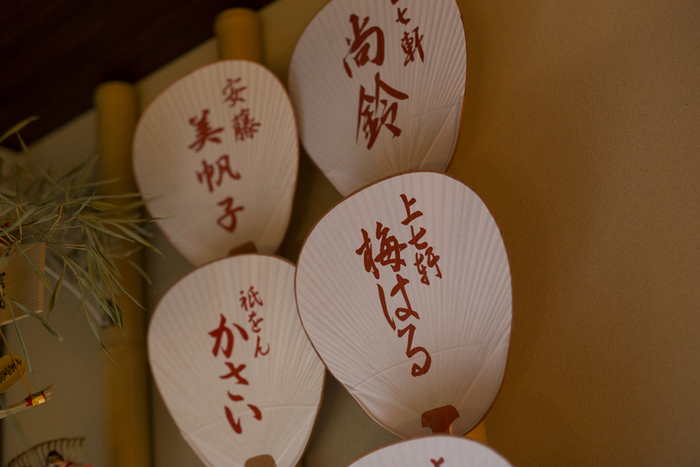 上七軒
尚鈴
安藤
美帆子
上七軒
梅はる
祇をん
かさい
上